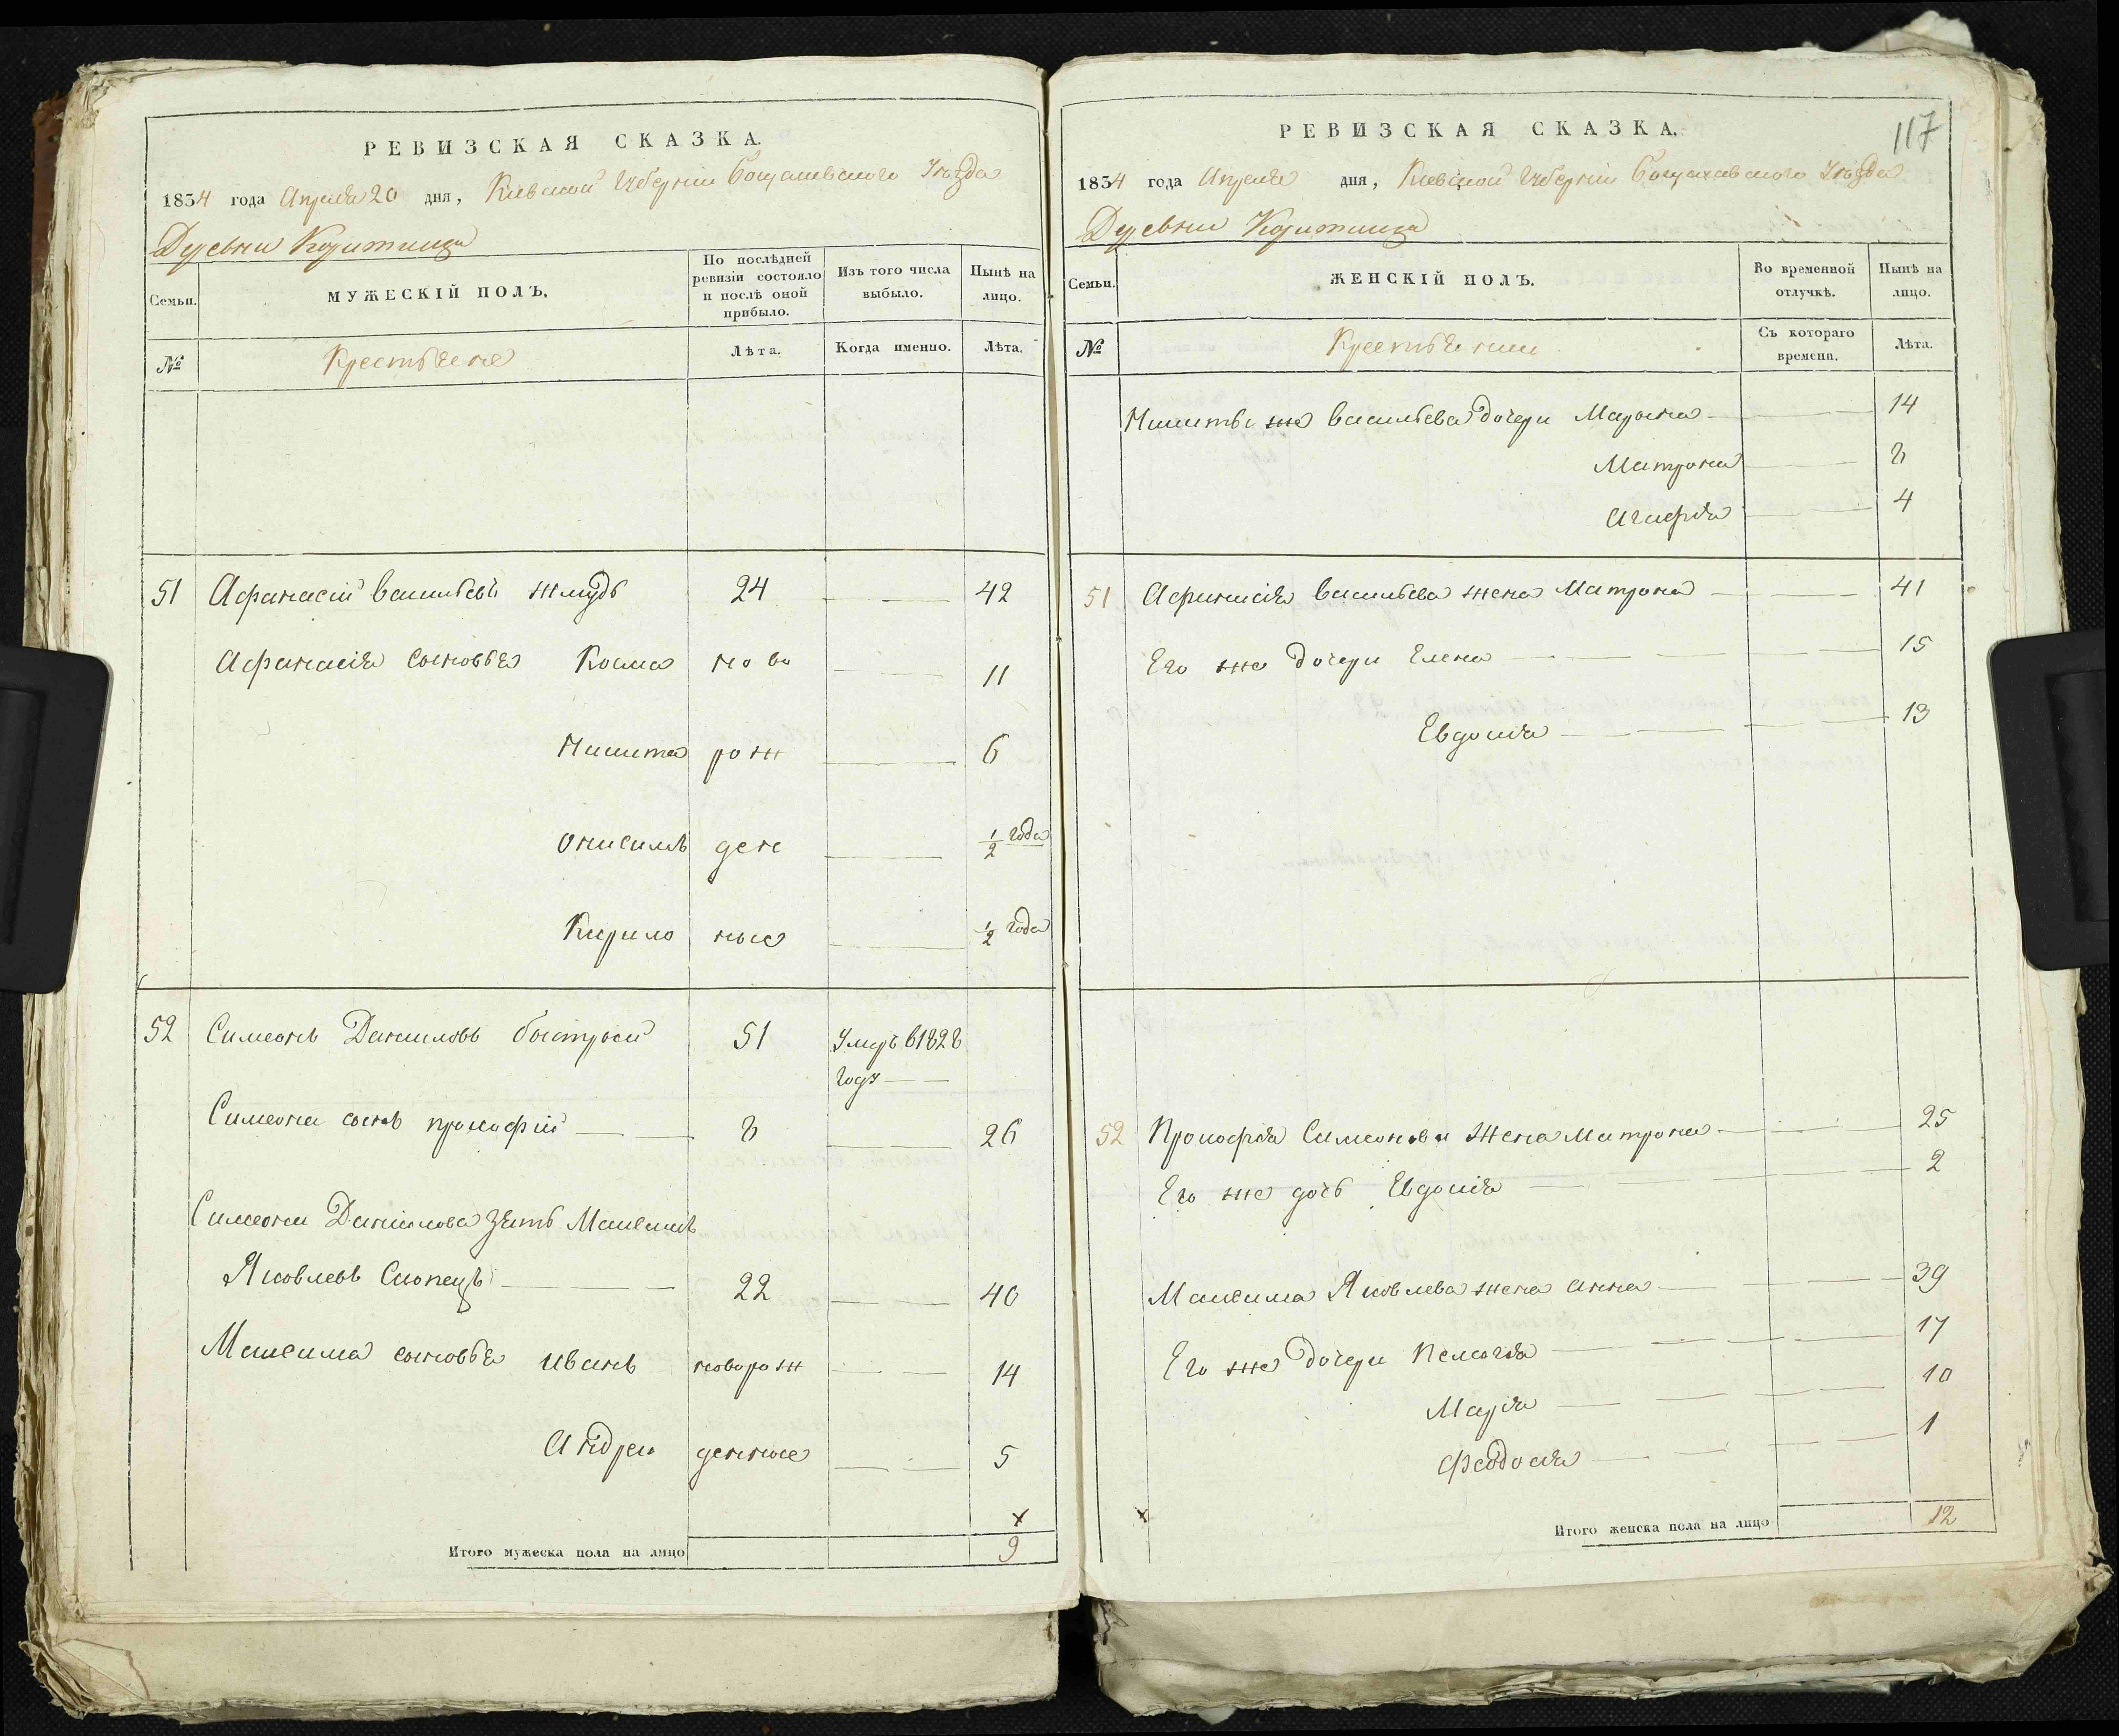 РЕВИЗСКАЯ СКАЗКА.
1834 года Апреля 20 дня, Киевской Губернии Богуславского Уезда
Деревни
Семьи.
МУЖЕСКІЙ ПОЛЪ.
По послѣдней ревизіи состояло и послѣ оной прибыло.
Изъ того числа выбыло.
Нынѣ на лицо.
№
Крестьяне
Лѣта.
Когда именно.
Лѣта.
51 Афанасій Васильевъ Жмудь 24 42
Афанасія сыновья Косма ново 11
Никита рож 6
Онисимъ ден 1/2 года
Кирило ные 1/2 года
52 Симеонъ Даниловъ Быстрый 51 Умеръ в 1828
году
Симеона сынъ Прокофій 8 26
Симеона Данилова зять Максимъ
Яковлевъ Скопецъ 22 40
Максима сыновья Иванъ новорож 14
Андрей денные 5
х
Итого мужеска пола на лицо 9
117
РЕВИЗСКАЯ СКАЗКА.
1834 года Апреля дня, Киевской Губернии Уезда
Деревни
Семьи.
ЖЕНСКІЙ ПОЛЪ.
Во временной отлучкѣ.
Нынѣ на лицо.
№
Крестьянки
Съ котораго времени.
Лѣта.
Никиты же Васильева дочери Марына 14
Матрона 8
Агафія 4
51 Афанасія Васильева жена Матрона 41
Его же дочери Елена 15
Евдокія 13
52 Прокофія Симеонова жена Матрона 25
Его же дочь Евдокія 2
Максима Яковлева жена Анна 39
Его же дочери Пелагія 17
Марія 10
Феодосія 1
х
Итого женска пола на лицо 12